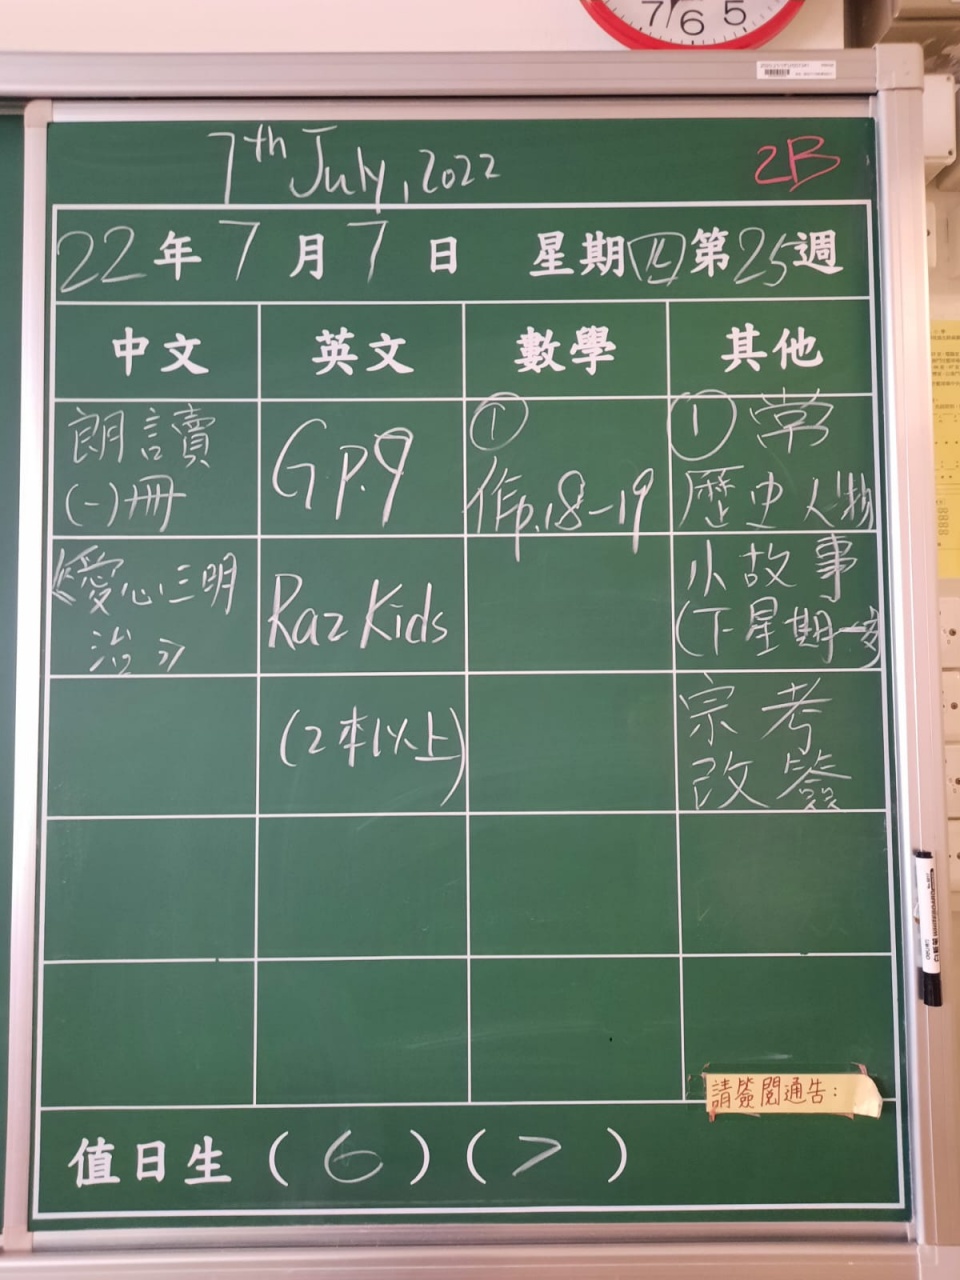 7 6 5
7th July, 2022
2B
22年7月7日 星期四第25週
中文 英文 數學 其他
朗讀
(一)冊
G p.9
①
作p.18-19
①常
歷史人物
《愛心三明
治》
Raz Kids
小故事
(下星期一交)
(2本以上)
宗考
改簽
請簽閱通告：
值日生(6)(7)